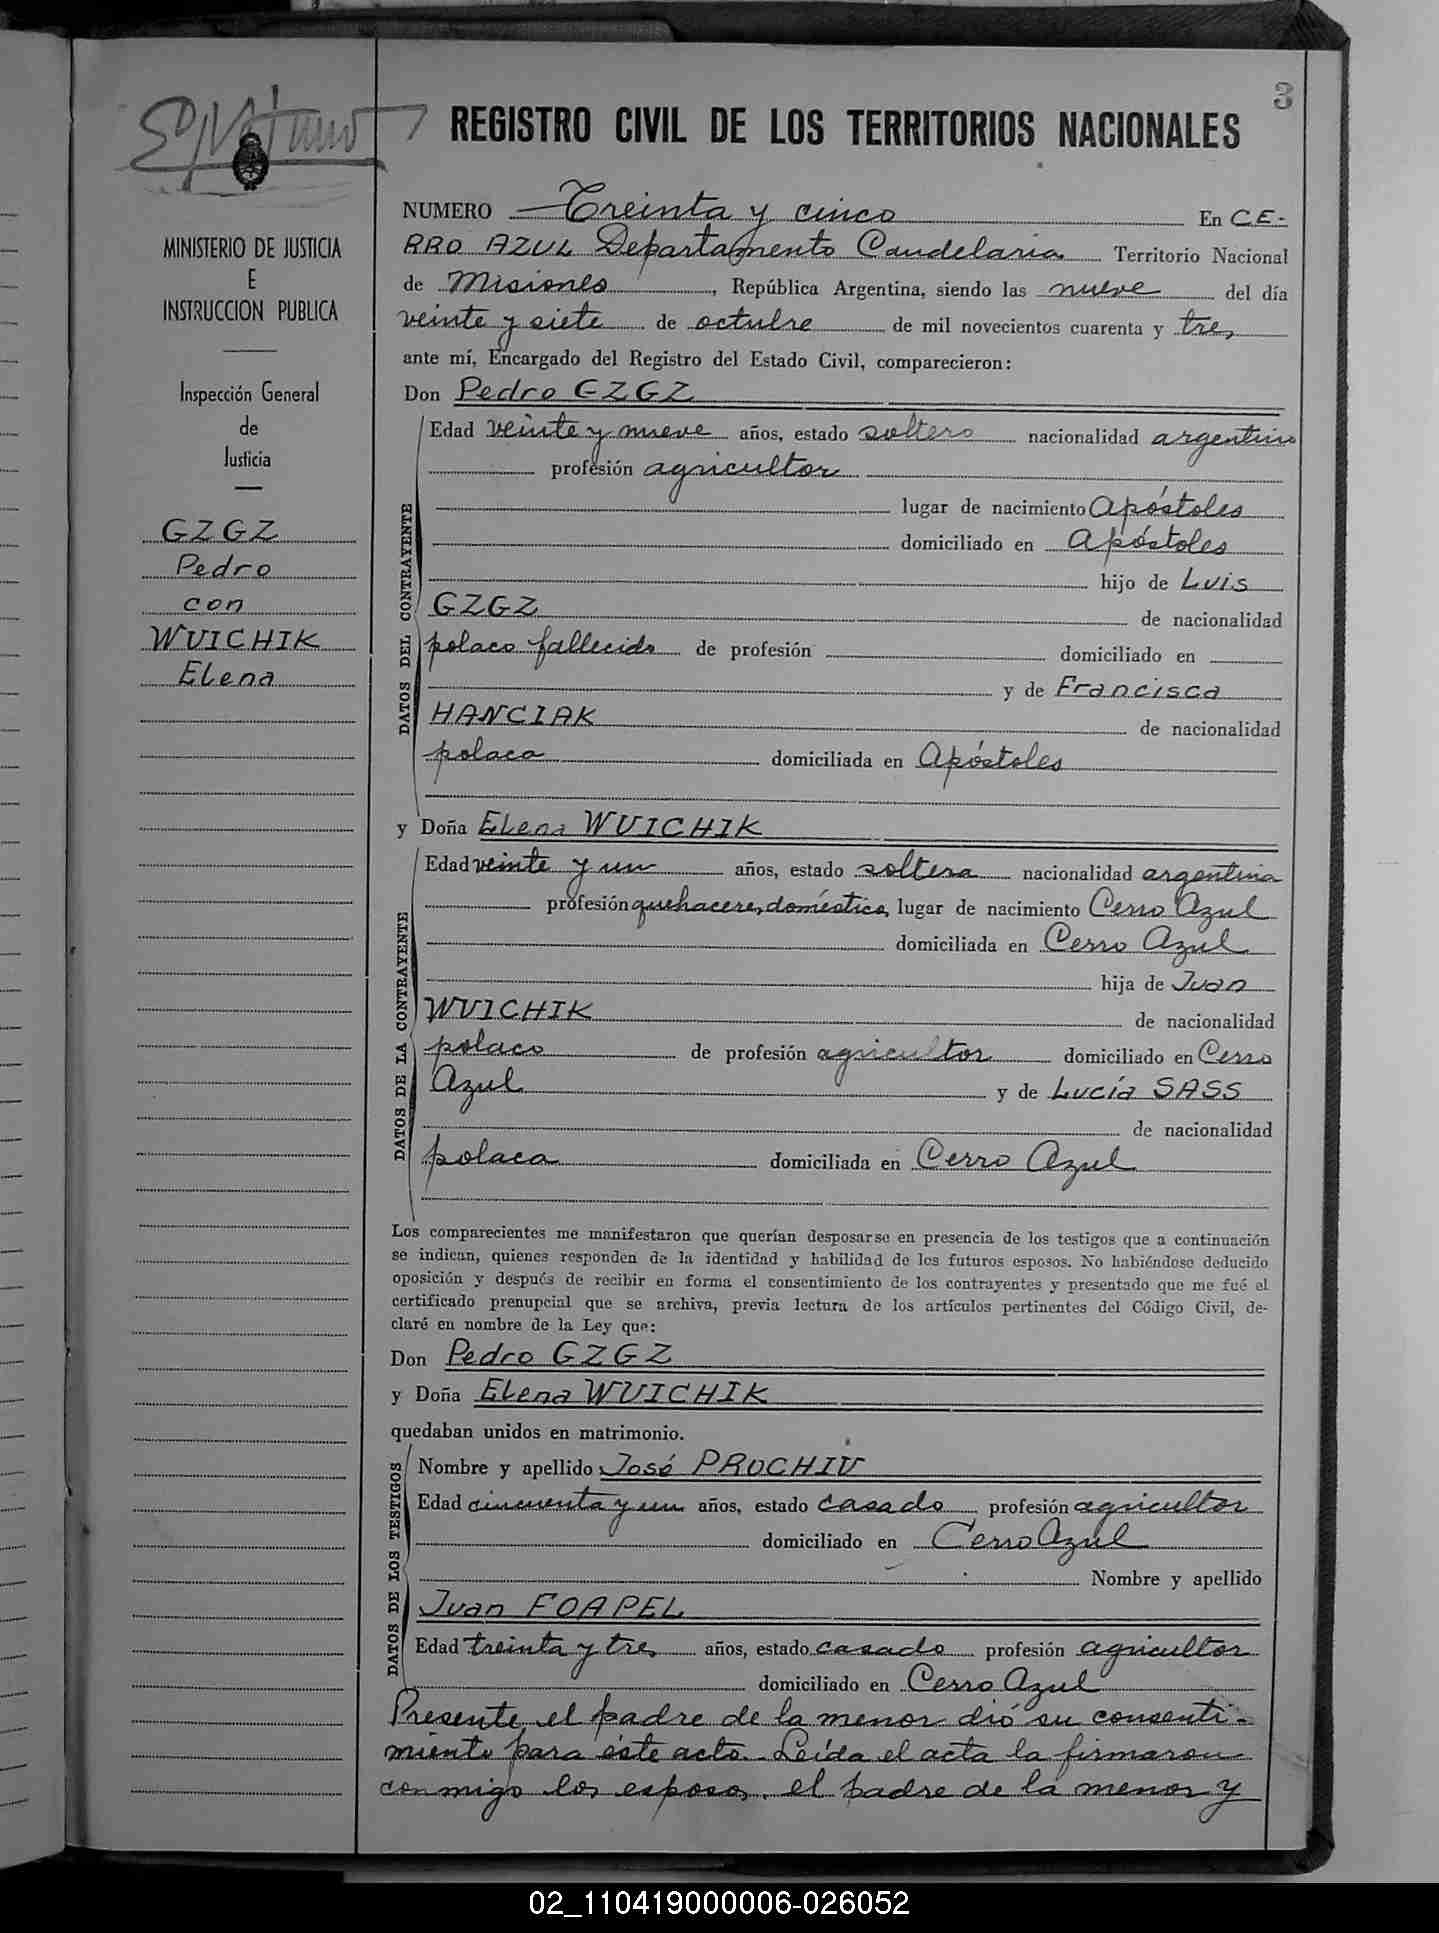 3
REGISTRO CIVIL DE LOS TERRITORIOS NACIONALES
MINISTERIO DE JUSTICIA
E
INSTRUCCION PUBLICA
Inspección General
de
Justicia
GZGZ
Pedro
con
WUICHIK
Elena
NUMERO Treinta y cinco En CE-
RRO AZUL Departamento Candelaria Territorio Nacional
de Misiones, República Argentina, siendo las nueve del día
veinte y siete de octubre de mil novecientos cuarenta y tres
ante mí, Encargado del Registro del Estado Civil, comparecieron:
Don Pedro GZGZ
DATOS DEL CONTRAYENTE
Edad veinte y nueve años, estado soltero nacionalidad argentino
profesión agricultor
lugar de nacimiento Apóstoles
domiciliado en Apóstoles
hijo de Luis
GZGZ de nacionalidad
polaco fallecido de profesión domiciliado en
y de Francisca
HANCIAK de nacionalidad
polaca domiciliada en Apóstoles
y Doña Elena WUICHIK
DATOS DE LA CONTRAYENTE
Edad veinte y un años, estado soltera nacionalidad argentina
profesión quehaceres domésticos lugar de nacimiento Cerro Azul
domiciliada en Cerro Azul
hija de Juan
WUICHIK de nacionalidad
polaco de profesión agricultor domiciliado en Cerro
Azul y de Lucía SASS
de nacionalidad
polaca domiciliada en Cerro Azul
Los comparecientes me manifestaron que querían desposarse en presencia de los testigos que a continuación
se indican, quienes responden de la identidad y habilidad de los futuros esposos. No habiéndose deducido
oposición y después de recibir en forma el consentimiento de los contrayentes y presentado que me fué el
certificado prenupcial que se archiva, previa lectura de los artículos pertinentes del Código Civil, de-
claré en nombre de la Ley que:
Don Pedro GZGZ
y Doña Elena WUICHIK
quedaban unidos en matrimonio.
DATOS DE LOS TESTIGOS
Nombre y apellido José PROCHIU
Edad cincuenta y un años, estado casado profesión agricultor
domiciliado en Cerro Azul
Nombre y apellido
Juan FOAPEL
Edad treinta y tres años, estado casado profesión agricultor
domiciliado en Cerro Azul
Presente el padre de la menor dió su consenti-
miento para éste acto. Leída el acta la firmaron
conmigo los esposos, el padre de la menor y
02_110419000006-026052